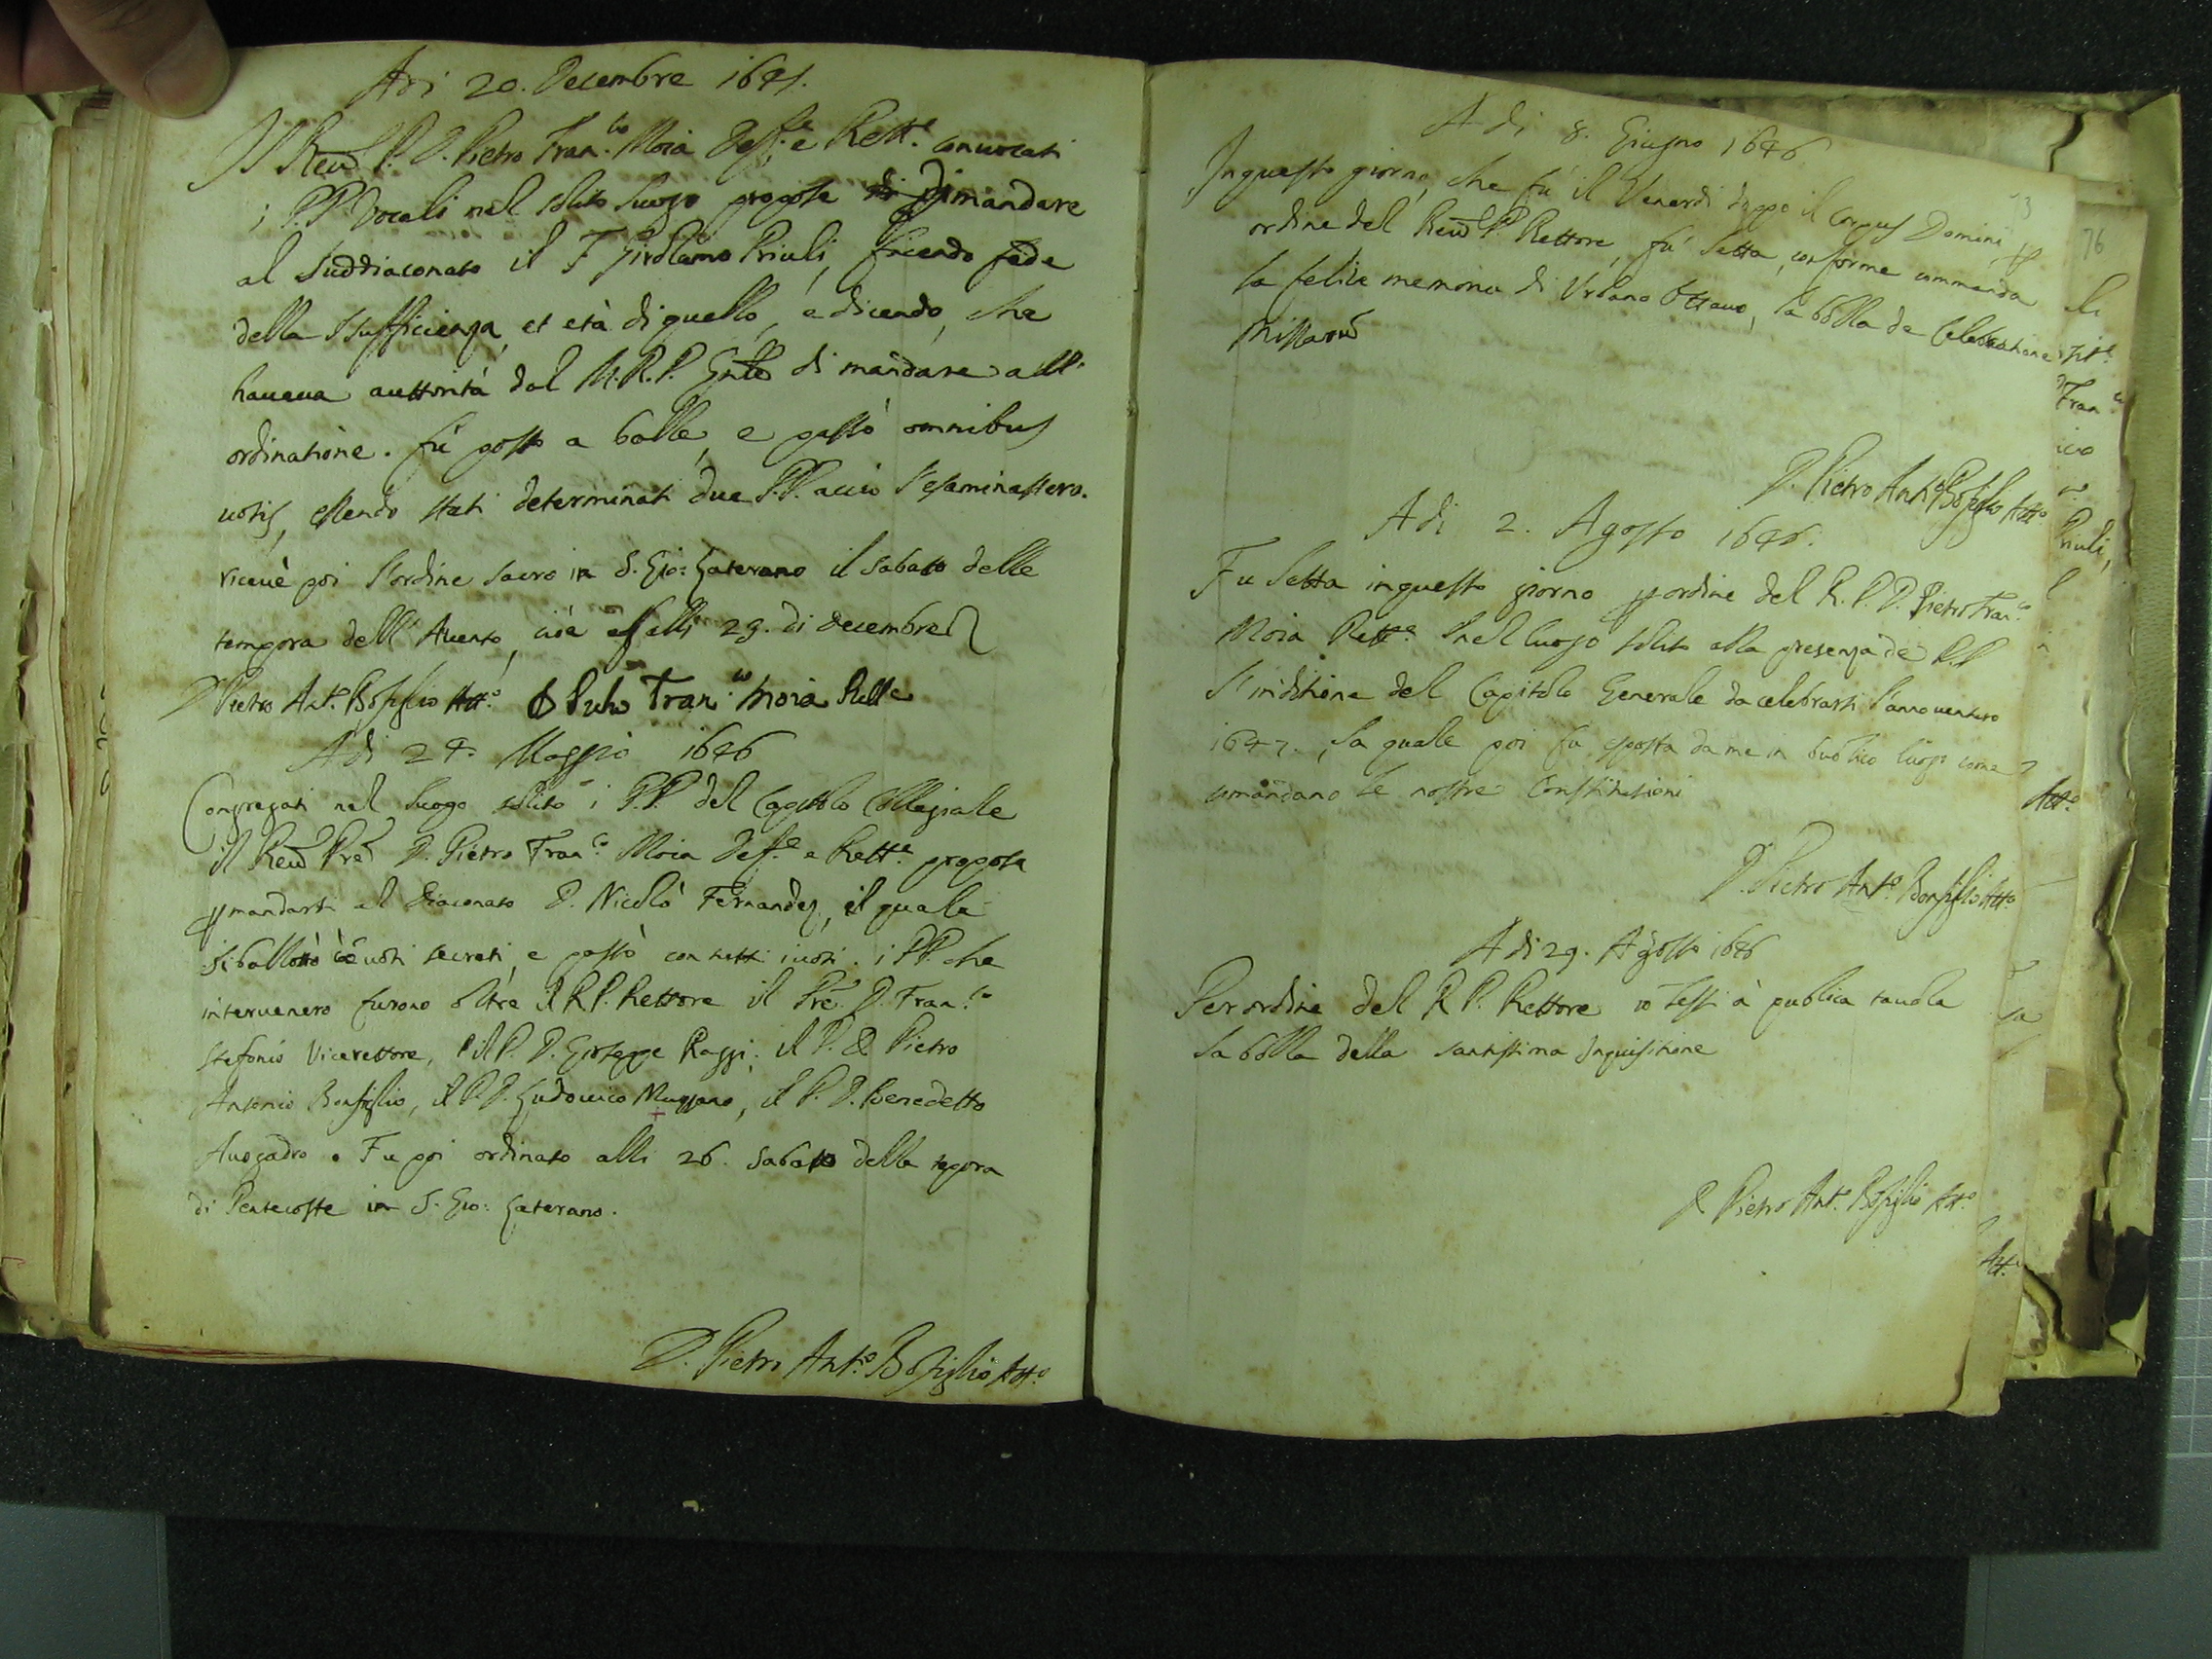 Adi 20. Decembre 1645.
Il Reud. P. D. Pietro Fran.co Moia Deff.e e Rett.e conuocati
i PP. Vocali nel solito luogo propose di mandare
al suddiaconato il F. Girolamo Priuli, facendo fede
della sufficienza, et età di quello, e dicendo, che
haueua auttorità dal M.R.P. Gnle di mandare all'
ordinatione. fù posto a balle, e passò omnibus
uotis, essendo stati determinati due PP. acciò l'esaminassero.
riceuè poi l'ordine sacro in S. Gio: Laterano il sabato delle
tempora dell'Auento, cioè alli 23. di decembre
D. Pietro Ant.o Bofiglio Att.o D Pietro Fran.co Moia Rett.e
Adi 24. Maggio 1646
Congregati nel luogo solito i PP. del Capitolo Collegiale
il Reud Pre D. Pietro Fran.co Moia Def.e e Rett.e propose
p mandarsi al Diaconato D. Nicolò Fernandez, il quale
si ballottò cõ uoti secreti, e passò con tutti i uoti. i PP. che
interuenero furono oltre il R.P. Rettore il Pre D. Fran.co
Stefonio Vicerettore, il P. D. Gioseppe Raggi, il P. D. Pietro
Antonio Bonfiglio, il P. D. Ludouico Muzzano, il P. D. Benedetto
Auogadro. Fu poi ordinato alli 26. sabato delle tẽpora
di Pentecoste in S. Gio: Laterano.
D. Pietro Ant.o Bofiglio Att.o
Adi 8. Giugno 1646
In questo giorno, che fù il Venerdì doppo il Corpus Domini, p
ordine del Reud P. Rettore, fù letta, conforme commanda
la felice memoria di Vrbano Ottauo, la bolla de Celebratione
Missarũ
D. Pietro Ant.o Bofiglio Att.o
Adi 2. Agosto 1646.
Fu letta in questo giorno p ordine del R. P. D. Pietro Fran.co
Moia Rett.e nel luogo solito alla presenza de PP.
l'inditione del Capitolo Generale da celebrarsi l'anno uenturo
1647., la quale poi fu esposta da me in publico luogo come
comandano le nostre Constitutioni
D. Pietro Ant.o Bonfiglio Att.o
Adi 29. Agosto 1646
Per ordine del R. P. Rettore io lessi à publica tauola
la bolla della santissima Inquisitione
D. Pietro Ant.o Bofiglio Att.o
76
Fran.co
Priuli,
Att.o
Att.o